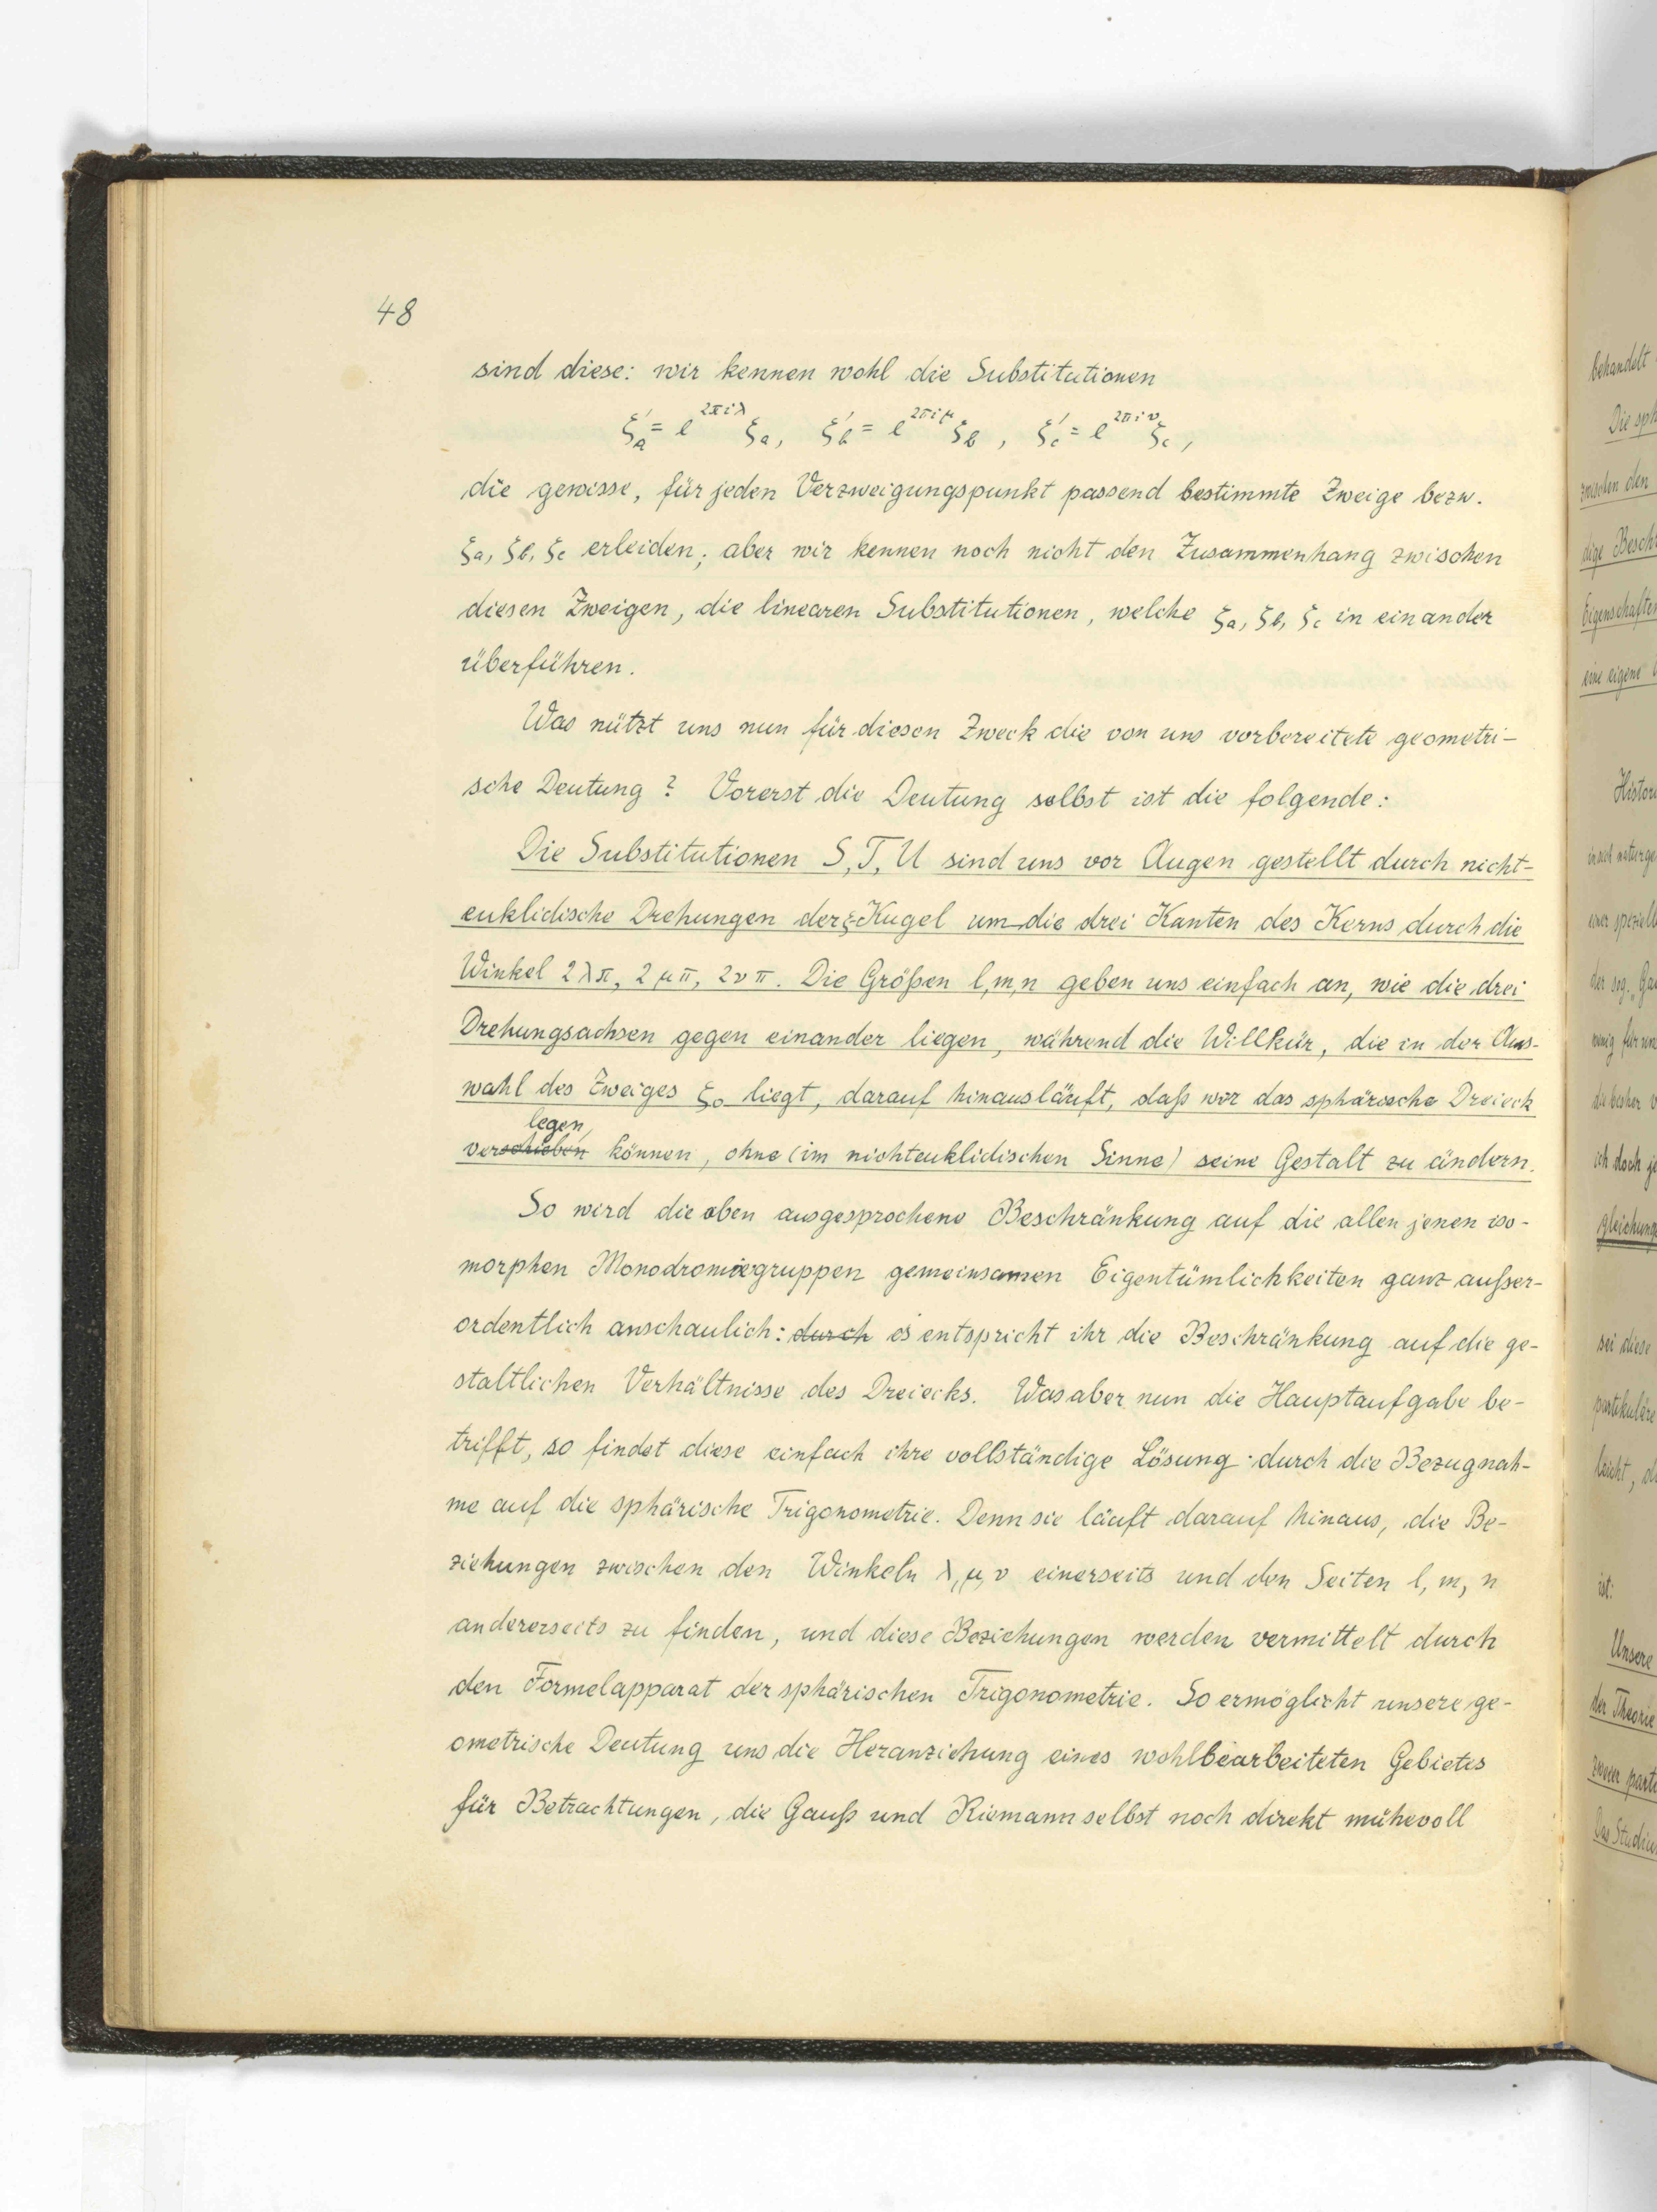 48
sind diese: wir kennen wohl die Substitutionen
ζ'a = e^{2πiλ} ζa, ζ'b = e^{2πiμ} ζb, ζ'c = e^{2πiν} ζc,
die gewisse, für jeden Verzweigungspunkt passend bestimmte Zweige bezw.
ζa, ζb, ζc erleiden; aber wir kennen noch nicht den Zusammenhang zwischen
diesen Zweigen, die linearen Substitutionen, welche ζa, ζb, ζc in einander
überführen.
Was nützt uns nun für diesen Zweck die von uns vorbereitete geometri-
sche Deutung? Vorerst die Deutung selbst ist die folgende:
Die Substitutionen S, T, U sind uns vor Augen gestellt durch nicht-
euklidische Drehungen der ζ-Kugel um die drei Kanten des Kerns durch die
Winkel 2λπ, 2μπ, 2νπ. Die Größen l, m, n geben uns einfach an, wie die drei
Drehungsachsen gegen einander liegen, während die Willkür, die in der Aus-
wahl des Zweiges ζ0 liegt, darauf hinausläuft, daß wir das sphärische Dreieck
legen,
verschieben können, ohne (im nichteuklidischen Sinne) seine Gestalt zu ändern.
So wird die oben ausgesprochene Beschränkung auf die allen jenen iso-
morphen Monodromiegruppen gemeinsamen Eigentümlichkeiten ganz außer-
ordentlich anschaulich: durch es entspricht ihr die Beschränkung auf die ge-
staltlichen Verhältnisse des Dreiecks. Was aber nun die Hauptaufgabe be-
trifft, so findet diese einfach ihre vollständige Lösung durch die Bezugnah-
me auf die sphärische Trigonometrie. Denn sie läuft darauf hinaus, die Be-
ziehungen zwischen den Winkeln λ, μ, ν einerseits und den Seiten l, m, n
andererseits zu finden, und diese Beziehungen werden vermittelt durch
den Formelapparat der sphärischen Trigonometrie. So ermöglicht unsere ge-
ometrische Deutung uns die Heranziehung eines wohlbearbeiteten Gebietes
für Betrachtungen, die Gauß und Riemann selbst noch direkt mühevoll
behandelt
Die sph
zwischen den
dige Besch
Eigenschaften
eine eigene
Histor
der sog. „Ga
die bisher
ich doch je
gleichung
sei diese
partikuläre
leicht, d
ist:
Unsere
der Theorie
zweier parti
Das Studiu